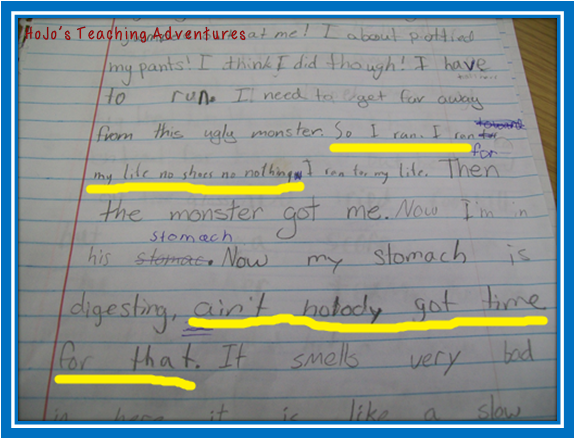 HoJo's Teaching Adventures
at me! I about pottied
my pants! I think I did though! I have
to run. I need to get far away
from this ugly monster. So I ran. I ran
for
my life no shoes no nothing. I ran for my life. Then
the monster got me. Now I'm in
stomach
his stomac. Now my stomach is
digesting, ain't nobody got time
for that. It smells very bad
in here it is like a slow